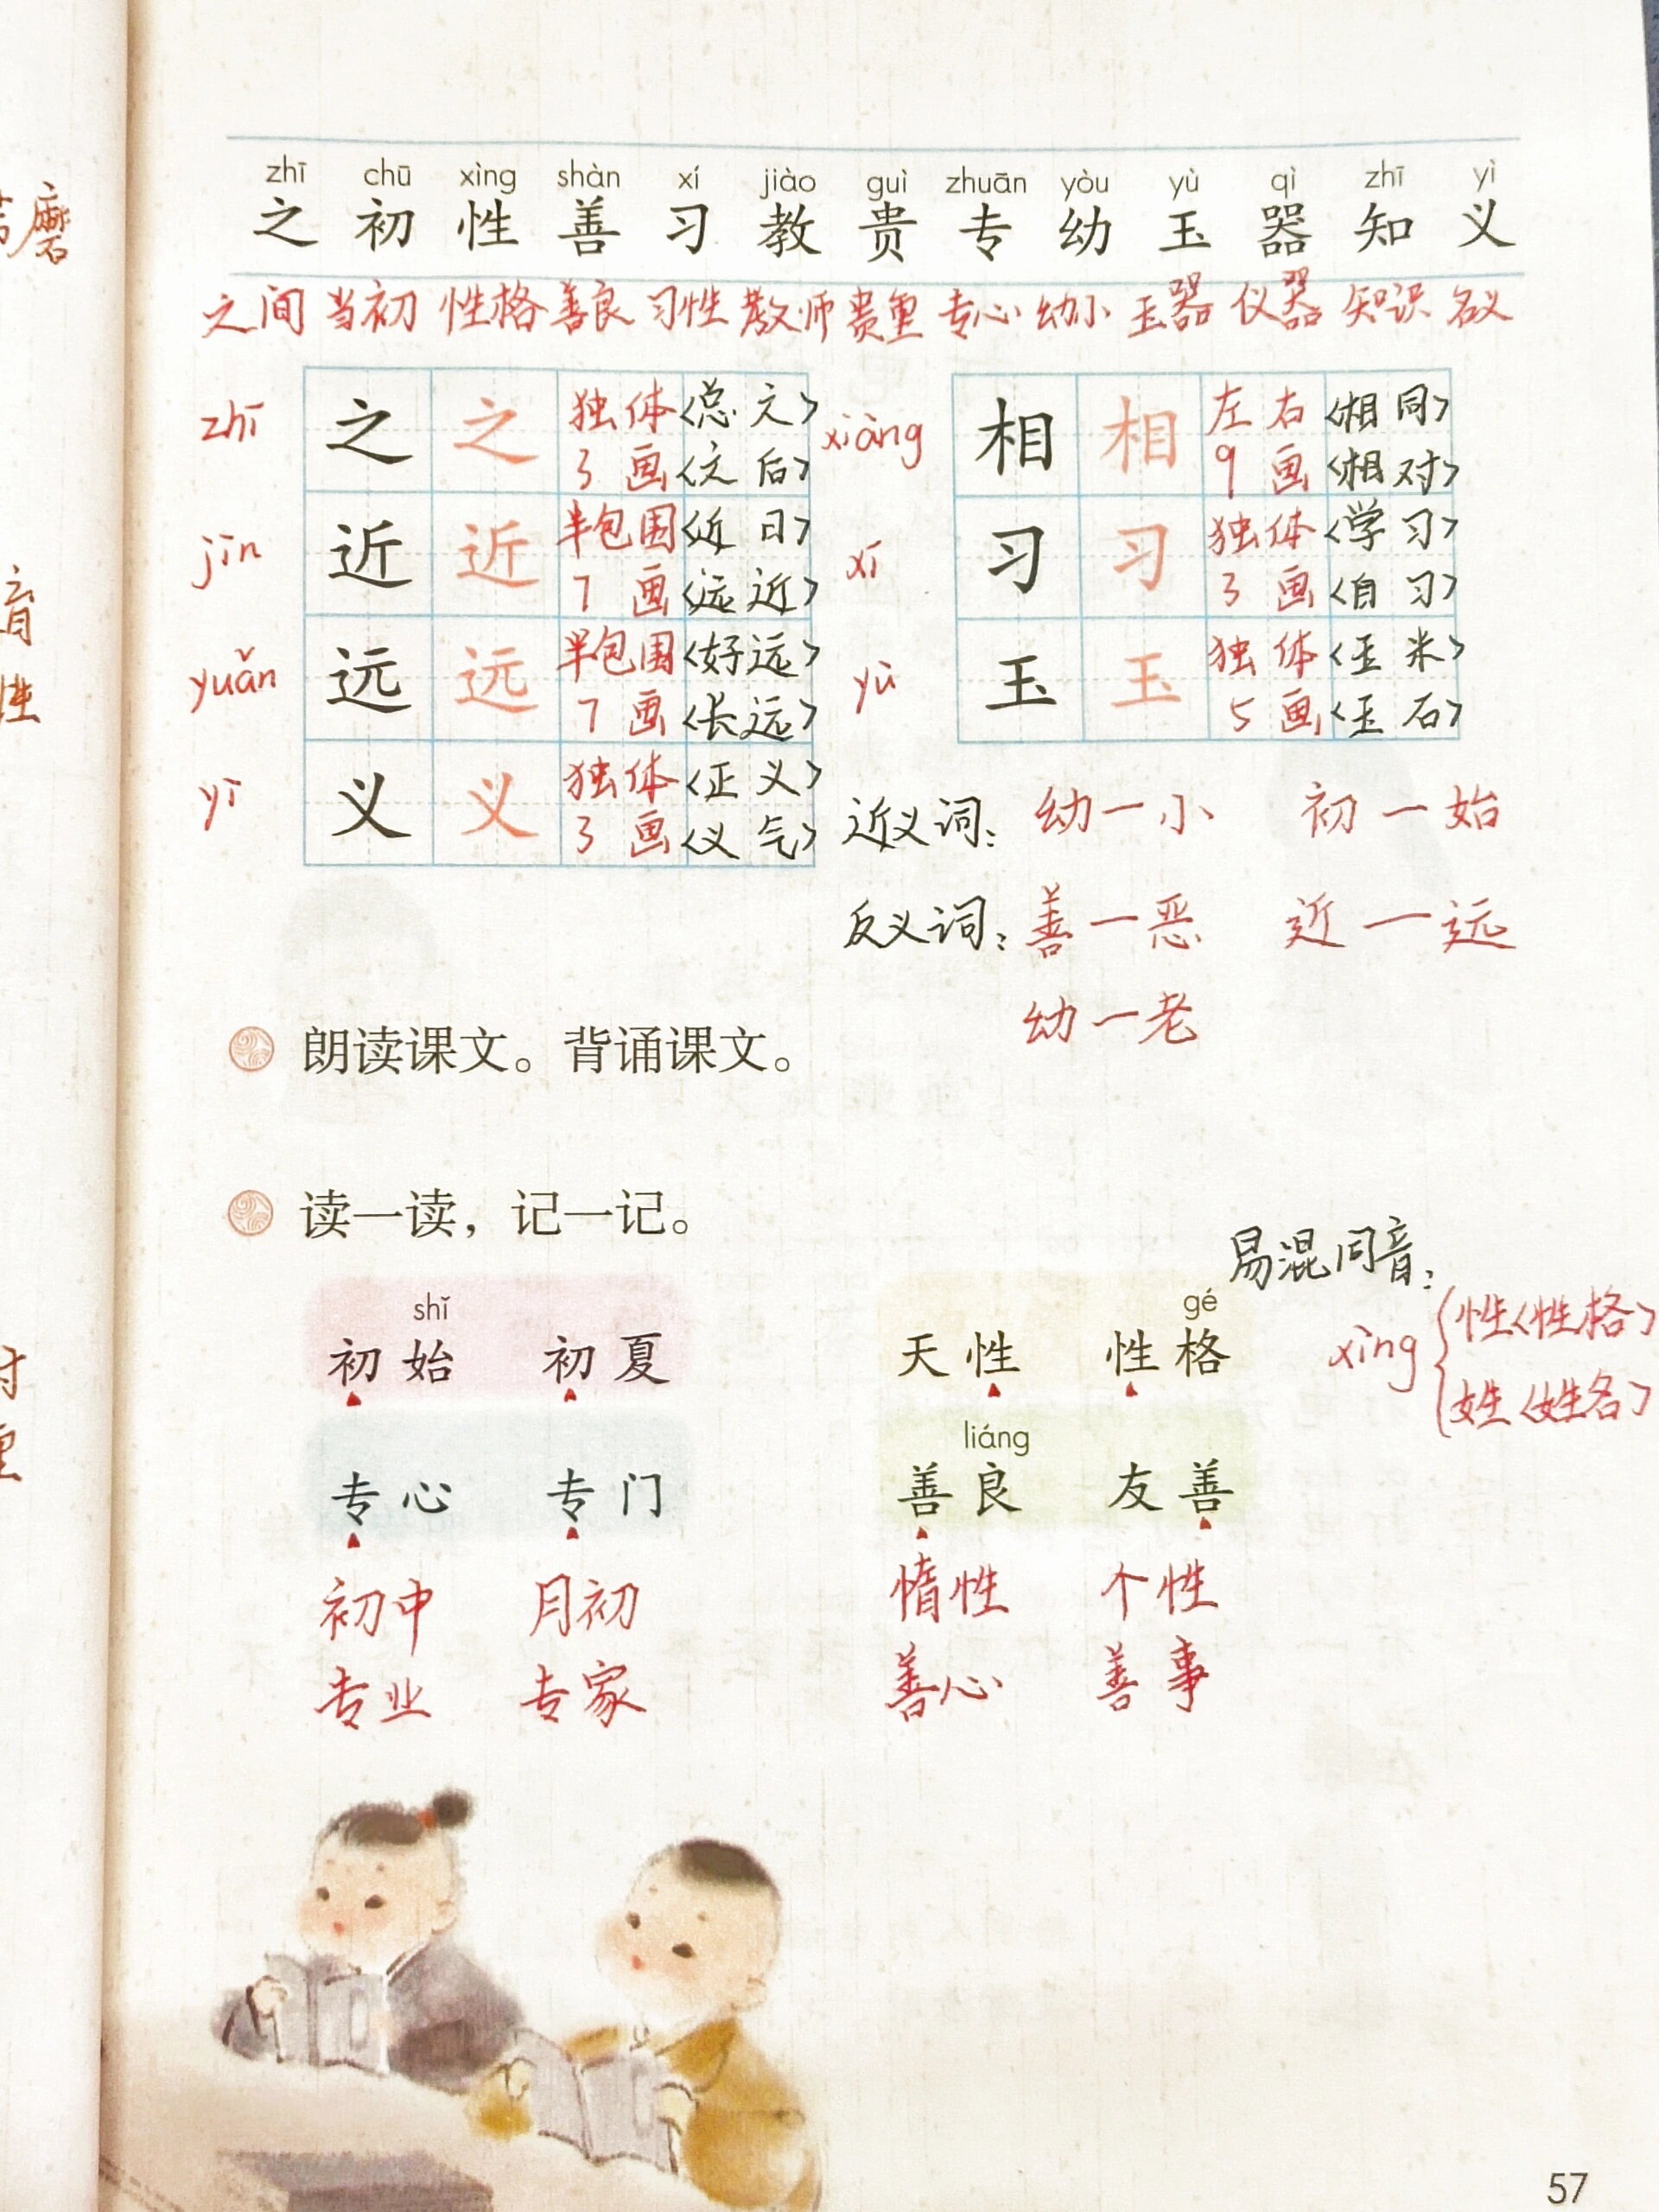 zhī chū xìng shàn xí jiào guì zhuān yòu yù qì zhī yì
之 初 性 善 习 教 贵 专 幼 玉 器 知 义
之间 当初 性格 善良 习性 教师 贵重 专心 幼小 玉器 仪器 知识 名义
zhī 之 之 独体 <总之>
3画 <之后>
jìn 近 近 半包围 <近日>
7画 <远近>
yuǎn 远 远 半包围 <好远>
7画 <长远>
yì 义 义 独体 <正义>
3画 <义气>
xiàng 相 相 左右 <相同>
9画 <相对>
xí 习 习 独体 <学习>
3画 <自习>
yù 玉 玉 独体 <玉米>
5画 <玉石>
近义词：幼一小 初一始
反义词：善一恶 近一远
幼一老
朗读课文。背诵课文。
读一读，记一记。
shǐ
初始 初夏
gé
天性 性格
专心 专门
liáng
善良 友善
初中 月初
专业 专家
惰性 个性
善心 善事
易混同音：
xìng { 性<性格>
姓<姓名>
57
磨
育
性